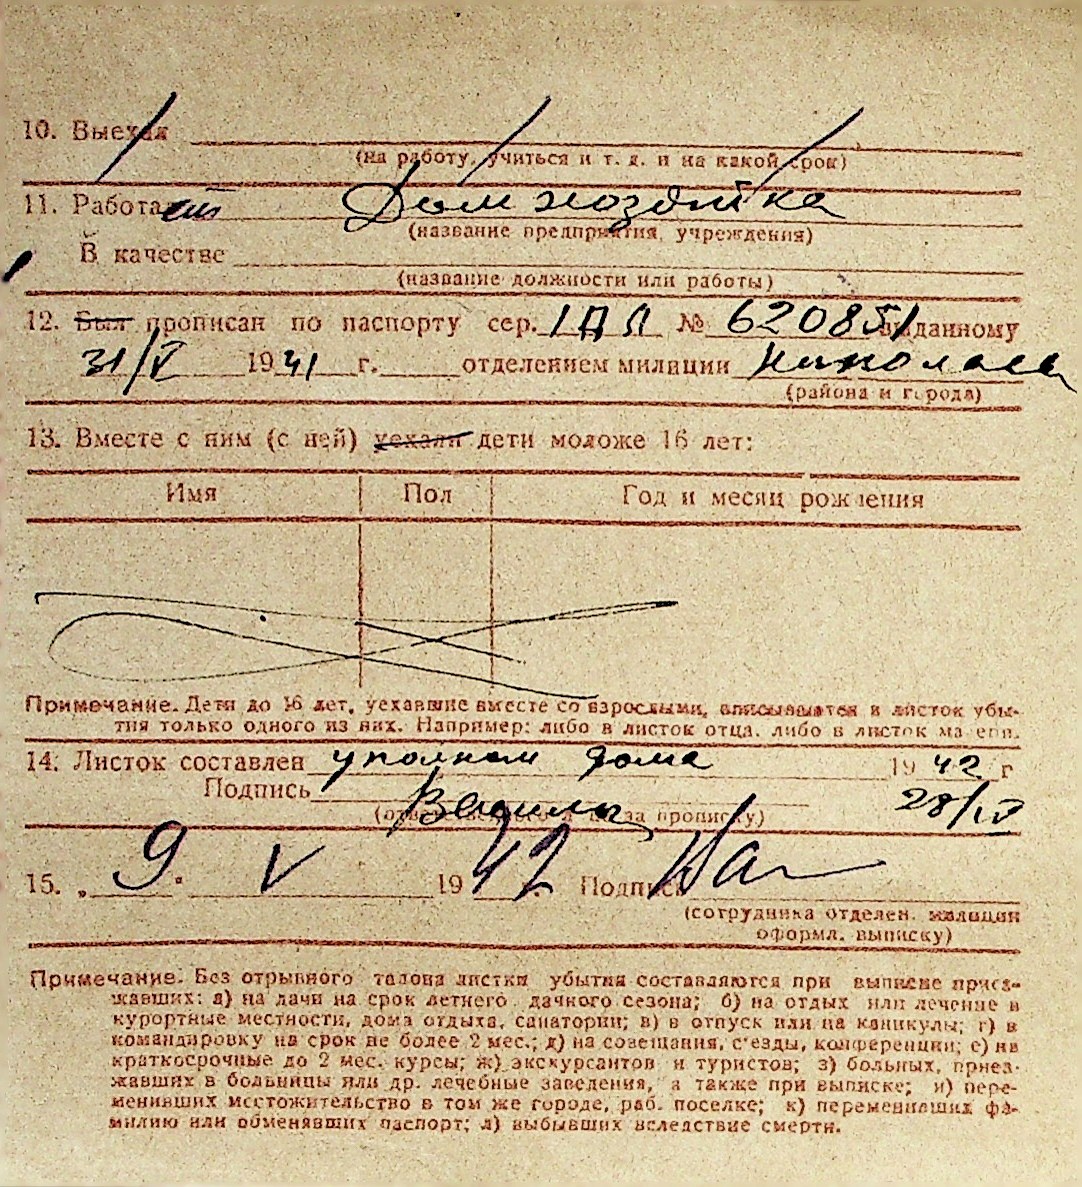 10. Выехал
(на работу, учиться и т. д. и на какой срок)
11. Работает Домхозяйка
(название предприятия, учреждения)
В качестве
(название должности или работы)
12. Был прописан по паспорту сер. № 620851 выданному
31/V 1941 г. отделением милиции
(района и города)
13. Вместе с ним (с ней) уехали дети моложе 16 лет:
Имя Пол Год и месяц рождения
Примечание. Дети до 16 лет, уехавшие вместе со взрослыми, вписываются в листок убы-
тия только одного из них. Например: либо в листок отца, либо в листок матери.
14. Листок составлен уполном дома 1942 г
Подпись 28/IV
(ответственного за прописку)
15. „9" V 1942 Подпись
(сотрудника отделен. милиции
оформл. выписку)
Примечание. Без отрывного талона листки убытия составляются при выписке приез-
жавших: а) на дачи на срок летнего дачного сезона; б) на отдых или лечение в
курортные местности, дома отдыха, санатории; в) в отпуск или на каникулы; г) в
командировку на срок не более 2 мес.; д) на совещания, с'езды, конференции; е) на
краткосрочные до 2 мес. курсы; ж) экскурсантов и туристов; з) больных, приез-
жавших в больницы или др. лечебные заведения, а также при выписке; и) пере-
менивших местожительство в том же городе, раб. поселке; к) переменивших фа-
милию или обменявших паспорт; л) выбывших вследствие смерти.